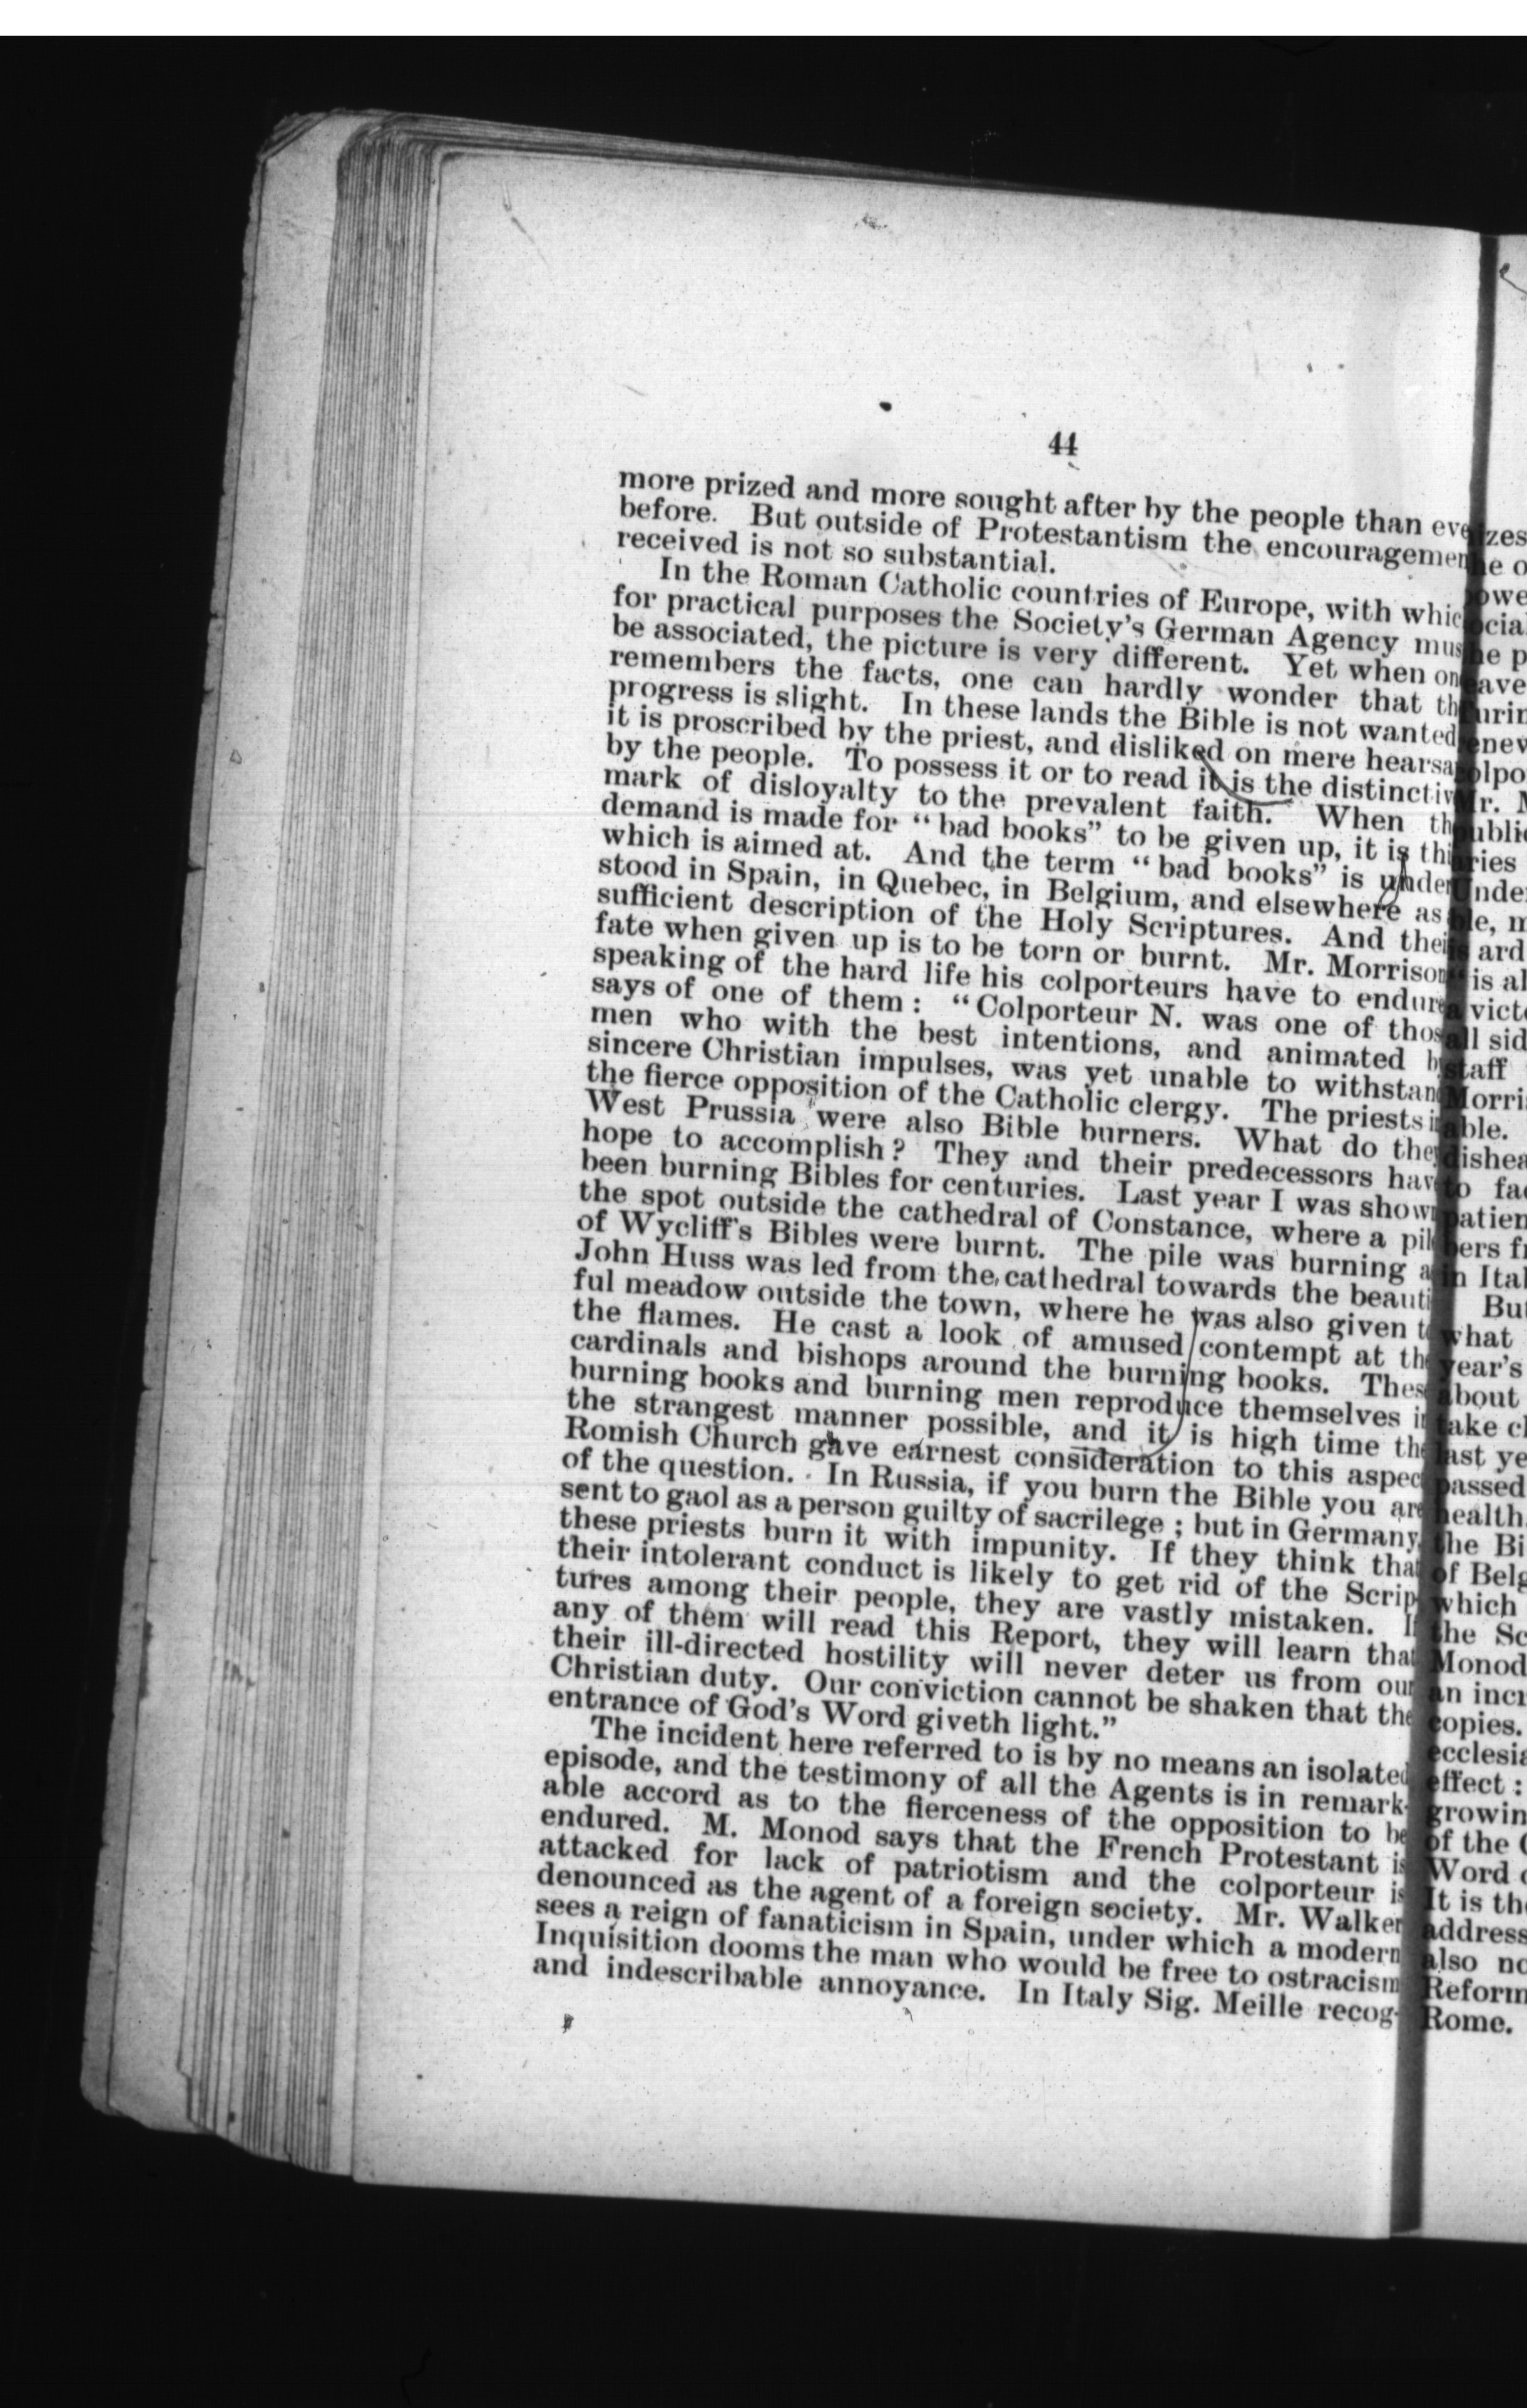 44
more prized and more sought after by the people than eve
before. But outside of Protestantism the encouragemen
received is not so substantial.
In the Roman Catholic countries of Europe, with whic
for practical purposes the Society's German Agency mus
be associated, the picture is very different. Yet when on
remembers the facts, one can hardly wonder that th
progress is slight. In these lands the Bible is not wanted
it is proscribed by the priest, and disliked on mere hearsa
by the people. To possess it or to read it is the distinctiv
mark of disloyalty to the prevalent faith. When th
demand is made for "bad books" to be given up, it is thi
which is aimed at. And the term "bad books" is under
stood in Spain, in Quebec, in Belgium, and elsewhere as
sufficient description of the Holy Scriptures. And thei
fate when given up is to be torn or burnt. Mr. Morrison
speaking of the hard life his colporteurs have to endure
says of one of them: "Colporteur N. was one of thos
men who with the best intentions, and animated b
sincere Christian impulses, was yet unable to withstan
the fierce opposition of the Catholic clergy. The priests i
West Prussia were also Bible burners. What do they
hope to accomplish? They and their predecessors hav
been burning Bibles for centuries. Last year I was shown
the spot outside the cathedral of Constance, where a pil
of Wycliff's Bibles were burnt. The pile was burning a
John Huss was led from the cathedral towards the beauti
ful meadow outside the town, where he was also given t
the flames. He cast a look of amused contempt at th
cardinals and bishops around the burning books. Thes
burning books and burning men reproduce themselves i
the strangest manner possible, and it is high time th
Romish Church gave earnest consideration to this aspec
of the question. In Russia, if you burn the Bible you are
sent to gaol as a person guilty of sacrilege; but in Germany,
these priests burn it with impunity. If they think that
their intolerant conduct is likely to get rid of the Scrip
tures among their people, they are vastly mistaken. If
any of them will read this Report, they will learn that
their ill-directed hostility will never deter us from our
Christian duty. Our conviction cannot be shaken that the
entrance of God's Word giveth light."
The incident here referred to is by no means an isolated
episode, and the testimony of all the Agents is in remark-
able accord as to the fierceness of the opposition to be
endured. M. Monod says that the French Protestant is
attacked for lack of patriotism and the colporteur is
denounced as the agent of a foreign society. Mr. Walker
sees a reign of fanaticism in Spain, under which a modern
Inquisition dooms the man who would be free to ostracism
and indescribable annoyance. In Italy Sig. Meille recog-